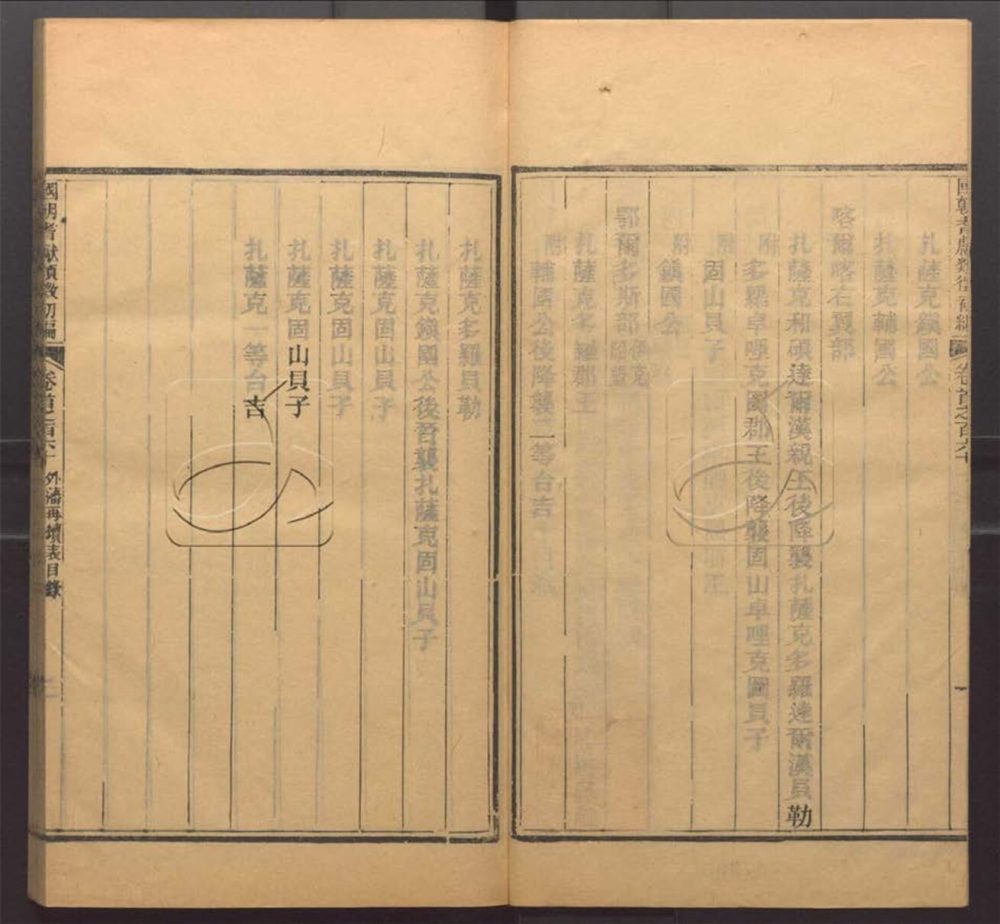 扎薩克鎮國公
扎薩克輔國公
喀爾喀右翼部
扎薩克和碩達爾漢親王後降襲扎薩克多羅達爾漢貝勒
附
多羅卓哩克圖郡王後降襲固山卓哩克圖貝子
附
固山貝子
附
鎮國公
鄂爾多斯部
扎薩克多羅郡王
附
輔國公後降襲二等台吉
扎薩克多羅貝勒
扎薩克鎮國公後晉襲扎薩克固山貝子
扎薩克固山貝子
扎薩克固山貝子
扎薩克固山貝子
扎薩克一等台吉
國朝耆獻類徵初編
卷首之百六十
外藩再續表目錄